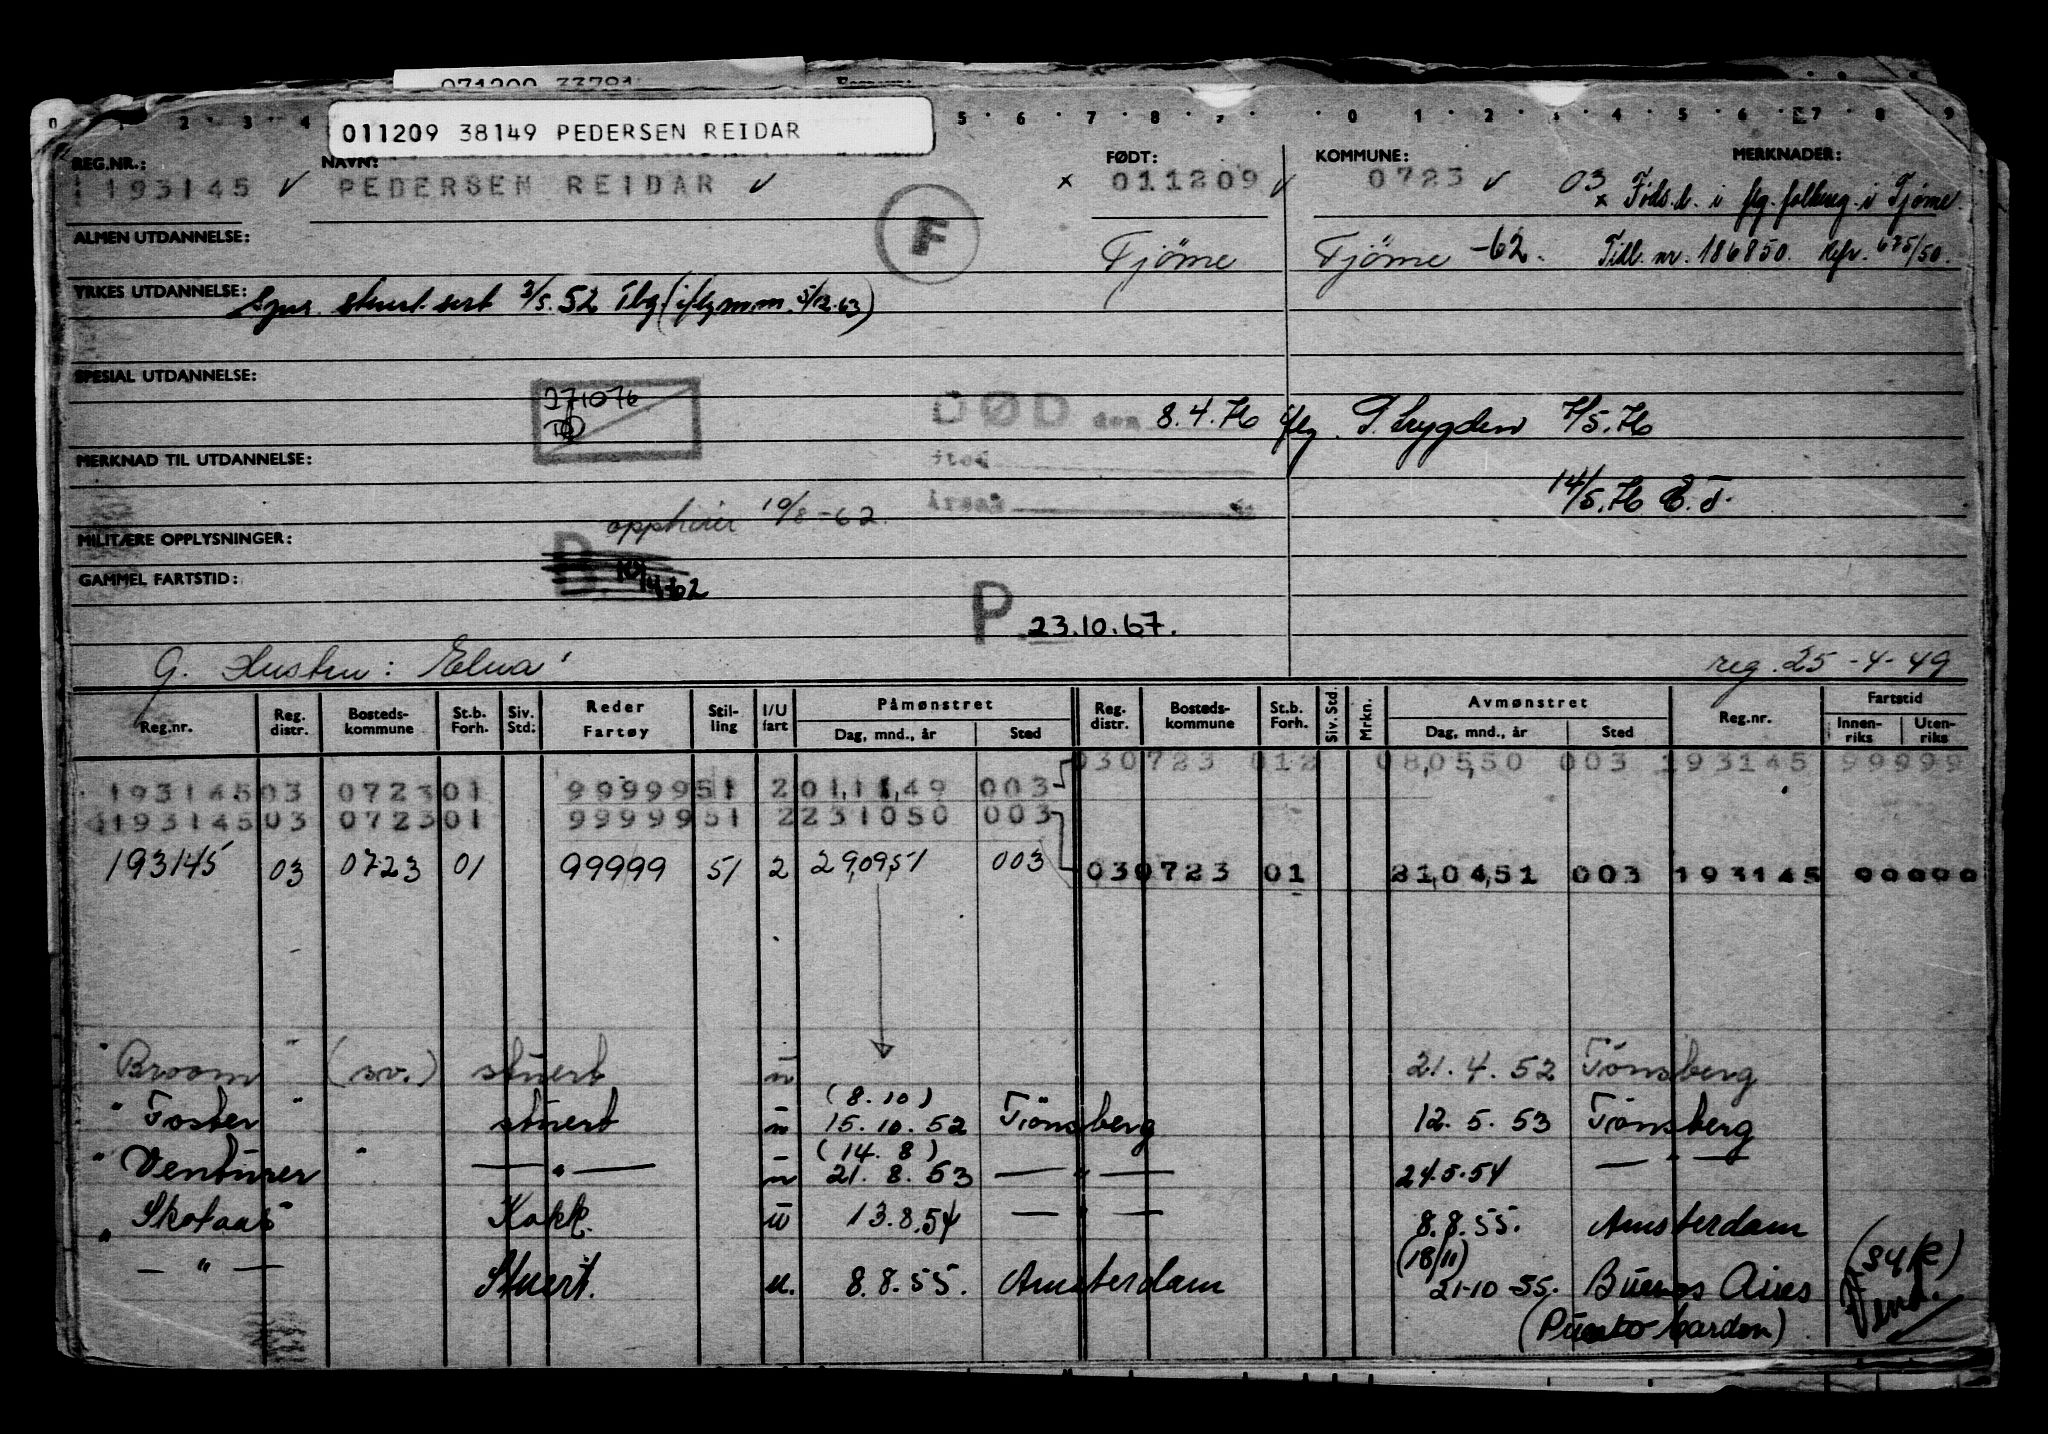 071209 33781
011209 38149 PEDERSEN REIDAR
REG.NR.: NAVN: FØDT: KOMMUNE: MERKNADER:
193145 PEDERSEN REIDAR x 011209 0723 03
x Føds.d. i flg. folkereg. i Tjøme.
F
ALMEN UTDANNELSE: Tjöme Tjöme -62. Tidl. nr. 186850. Refr. 675/50.
YRKES UTDANNELSE: stuert sert 3/5.52 Tbg (iflg m.m. 5/12.63)
SPESIAL UTDANNELSE:
271076
DØD den 8.4.76 iflg. T. trygden 7/5.76
MERKNAD TIL UTDANNELSE: Sted
Årsak 14/5.76
opphører 10/8-62.
MILITÆRE OPPLYSNINGER:
GAMMEL FARTSTID:
P 23.10.67.
G. Hustru: Elna reg. 25-4-49
Reg.nr. Reg. distr. Bosteds-kommune St.b. Forh. Siv. Std: Reder Fartøy Stil-ling I/U fart Påmønstret Dag, mnd., år Sted Reg. distr. Bosteds-kommune St.b. Forh. Siv. Std. Mrkn. Avmønstret Dag, mnd., år Sted Reg.nr. Fartstid Innen-riks Uten-riks
030723 012 08,05,50 003 193145 99999
193145 03 0723 01 99999 51 2 01,11,49 003
193145 03 0723 01 99999 51 2 231050 003
193145 03 0723 01 99999 51 2 29,09,51 003 030723 01 21,04,51 003 193145 00000
" Broom " (sv.) stuert u 21.4.52 Tönsberg
(8.10)
" Toster " stuert u 15.10.52 Tönsberg 12.5.53 Tönsberg
(14.8)
" Venturer " — " — u 21.8.53 — " — 24.5.54 — " —
" Skotaas Kokk. u 13.8.54 — " — 8.8.55. Amsterdam
(18/11)
— " — Stuert. u. 8.8.55. Amsterdam 21-10-55. Buenos Aires
(Puerto Cardon)
Vend.